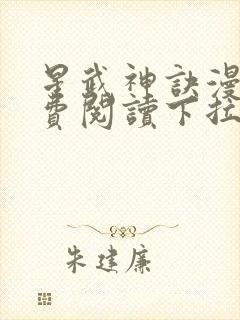 星武神訣漫
費閱讀下拉
朱建廉